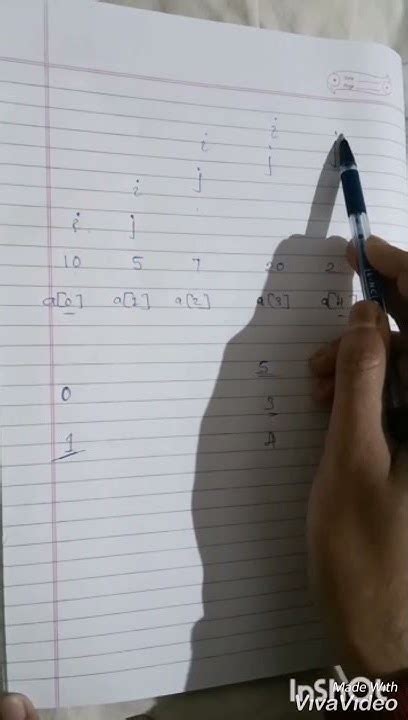 i
i j
i j
i j
10 5 7 20 2
a[0] a[1] a[2] a[3] a[4]
5
0 3
1 4
Made With
InShOt
VivaVideo